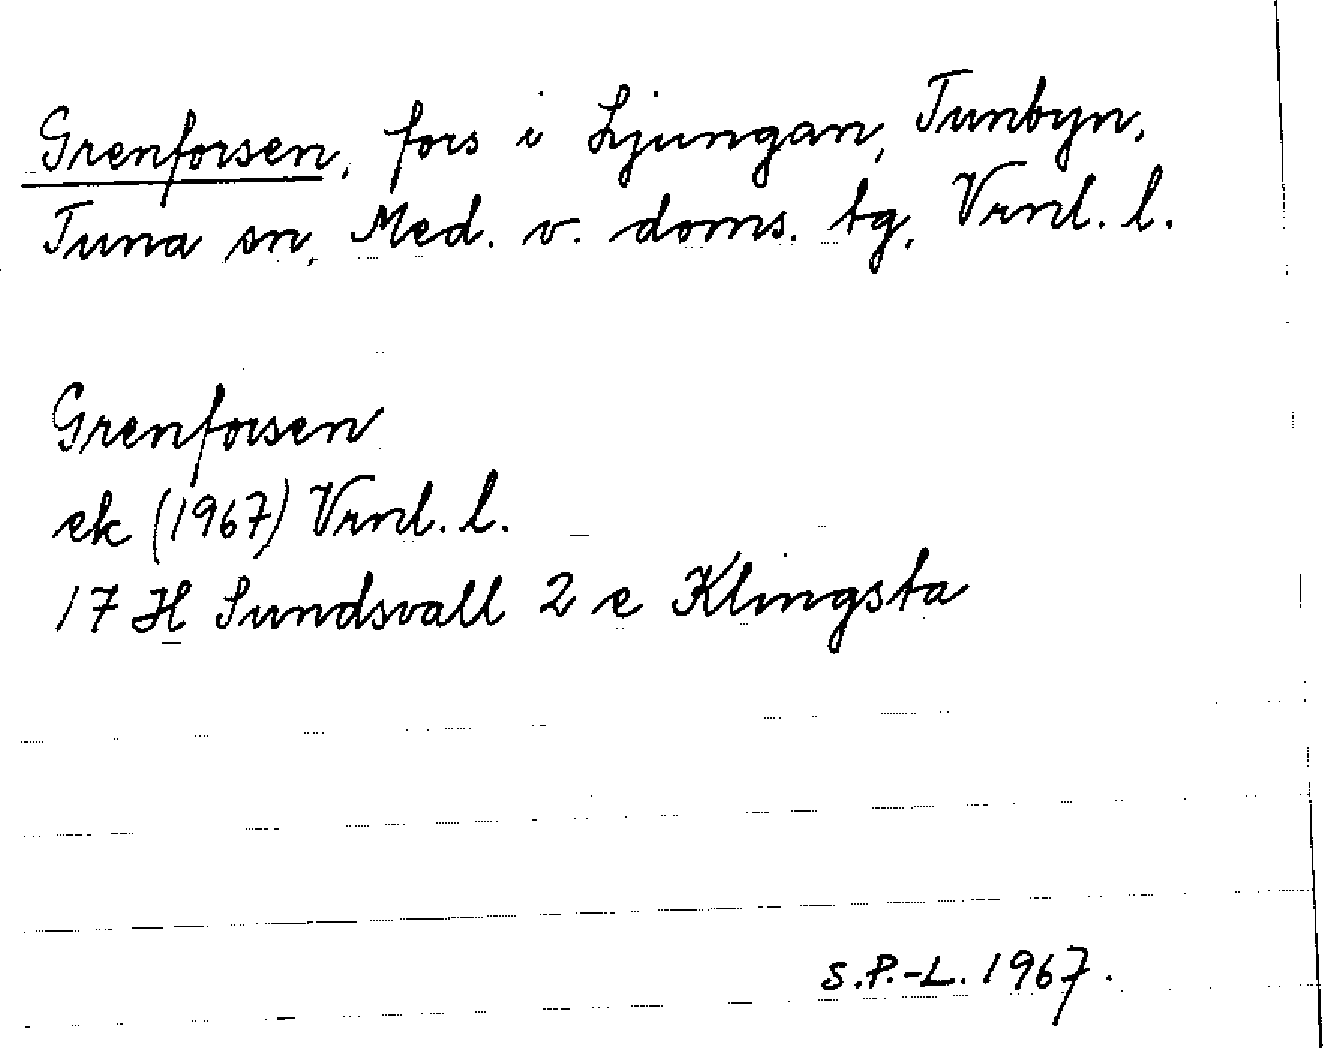 Grenforsen, fors i Ljungan, Tunbyn,
Tuna sn, Med. v. doms. tg, Vrnl. l.
Grenforsen
ek (1967) Vrnl. l.
17 H Sundsvall 2 e Klingsta
S.P.-L. 1967.